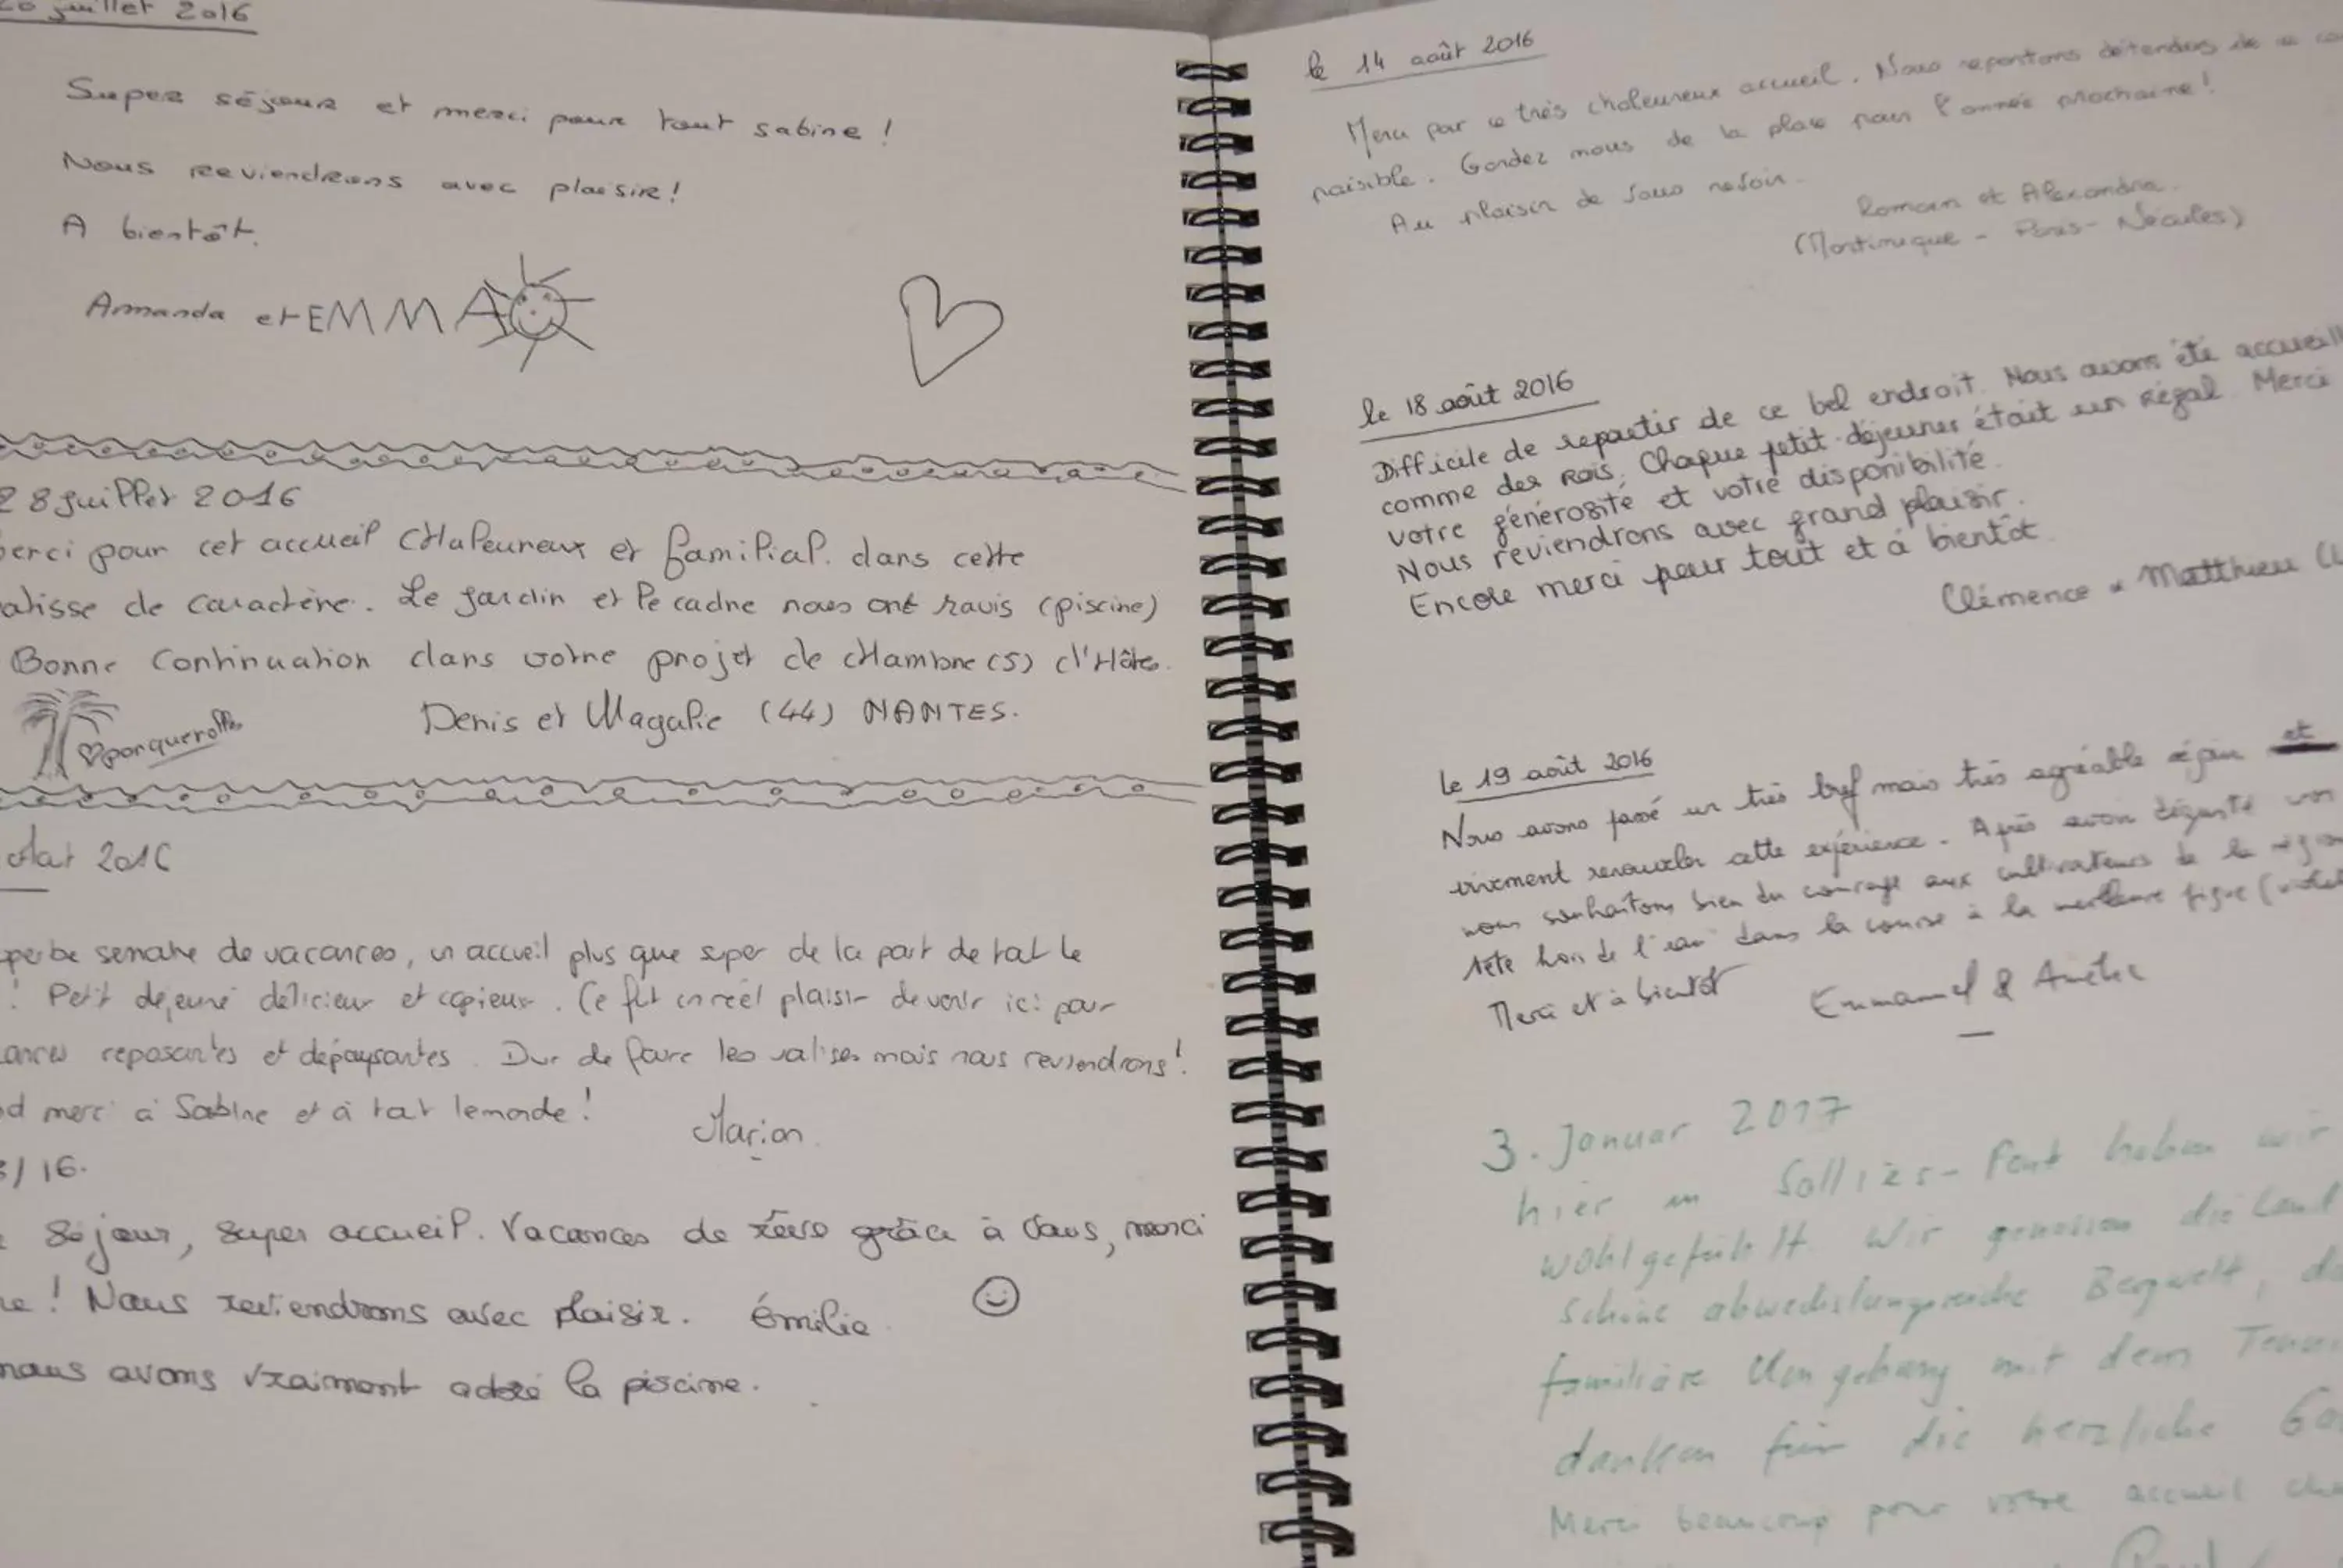 juillet 2016
Super séjour et merci pour tout Sabine !
Nous reviendrons avec plaisir !
A bientôt.
Amanda et EMMA
28 juillet 2016
erci pour cet accueil CHaleureux et familial. dans cette
atisse de caractère. Le jardin et le cadre nous ont ravis (piscine)
Bonne Continuation dans votre projet de cHambre(s) d'Hôtes.
Denis et Magalie (44) NANTES.
♡porquerolles
2016
perbe semaine de vacances, un accueil plus que super de la part de tout le
! Petit dejeuné délicieux et copieux. Ce fut un réel plaisir de venir ici pour
ances reposantes et dépaysantes. Dur de faire les valises mais nous reviendrons !
d merci à Sabine et à tout le monde !
Marion
/16.
séjour, super accueil. Vacances de rêve grâce à vous, merci
ne ! Nous reviendrons avec plaisir. Émilie
nous avons vraiment adoré la piscine.
le 14 août 2016
Merci par ce très chaleureux accueil. Nous repartons détendus de ce
paisible. Gardez nous de la place pour l'année prochaine !
Au plaisir de vous revoir.
Romain et Alexandra.
(Martinique - Paris -
le 18 août 2016
Difficile de repartir de ce bel endroit. Nous avons été accueill
comme des Rois. Chaque petit-déjeuner était un régal. Merci
votre générosité et votre disponibilité.
Nous reviendrons avec grand plaisir.
Encore merci pour tout et à bientôt
Clémence & Matthieu (
le 19 août 2016
Nous avons passé un très bref mais très agréable séjour et
vivement renouveler cette expérience. Après avoir dégusté vos
nous souhaitons bien du courage aux cultivateurs de la région
tête hors de l'eau dans la course à la meilleure figue (
Merci et à bientôt
Emmanuel & Amélie
3. Januar 2017
hier in Solliès-Pont haben wir
wohlgefühlt. Wir genossen die
schöne abwechslungsreiche Bergwelt, d
familiäre Umgebung mit dem
danken für die herzliche
Merci beaucoup pour votre accueil